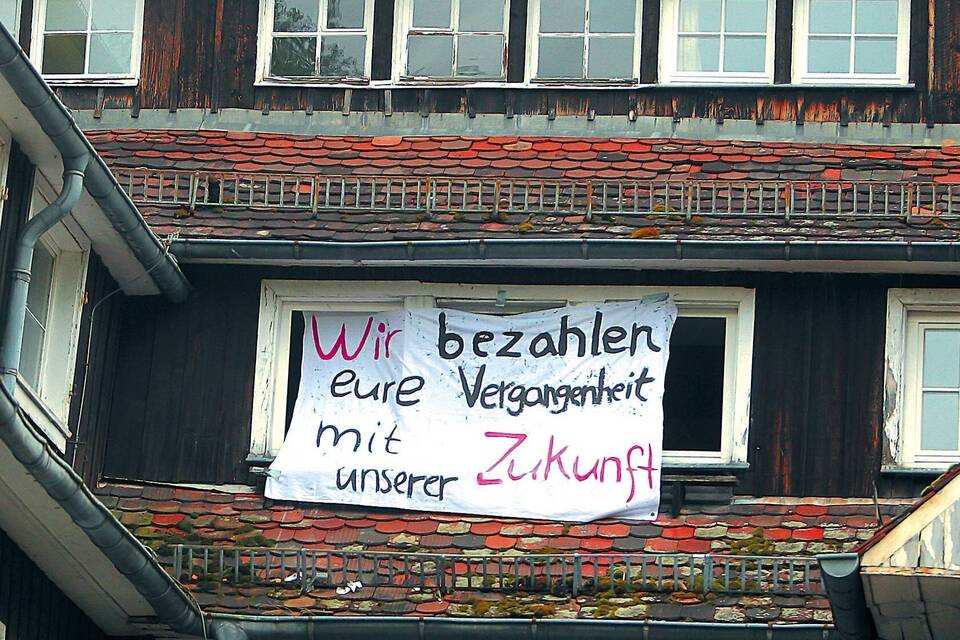 Wir bezahlen
eure Vergangenheit
mit
unserer Zukunft